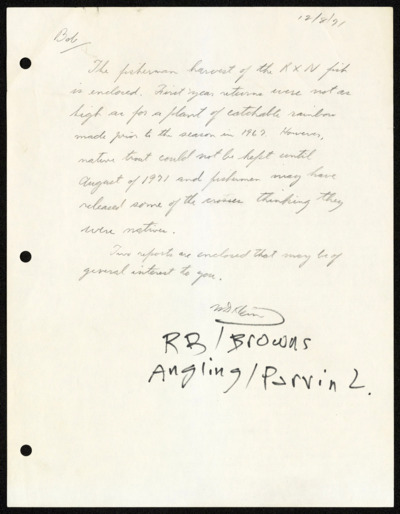 12/8/71
Bob
The fisherman harvest of the RXN fish
is enclosed. First year returns were not as
high as for a plant of catchable rainbow
made prior to the season in 1967. However,
native trout could not be kept until
August of 1971 and fishermen may have
released some of the crosses thinking they
were natives.
Two reports are enclosed that may be of
general interest to you.
RB/Browns
Angling/Parvin L.